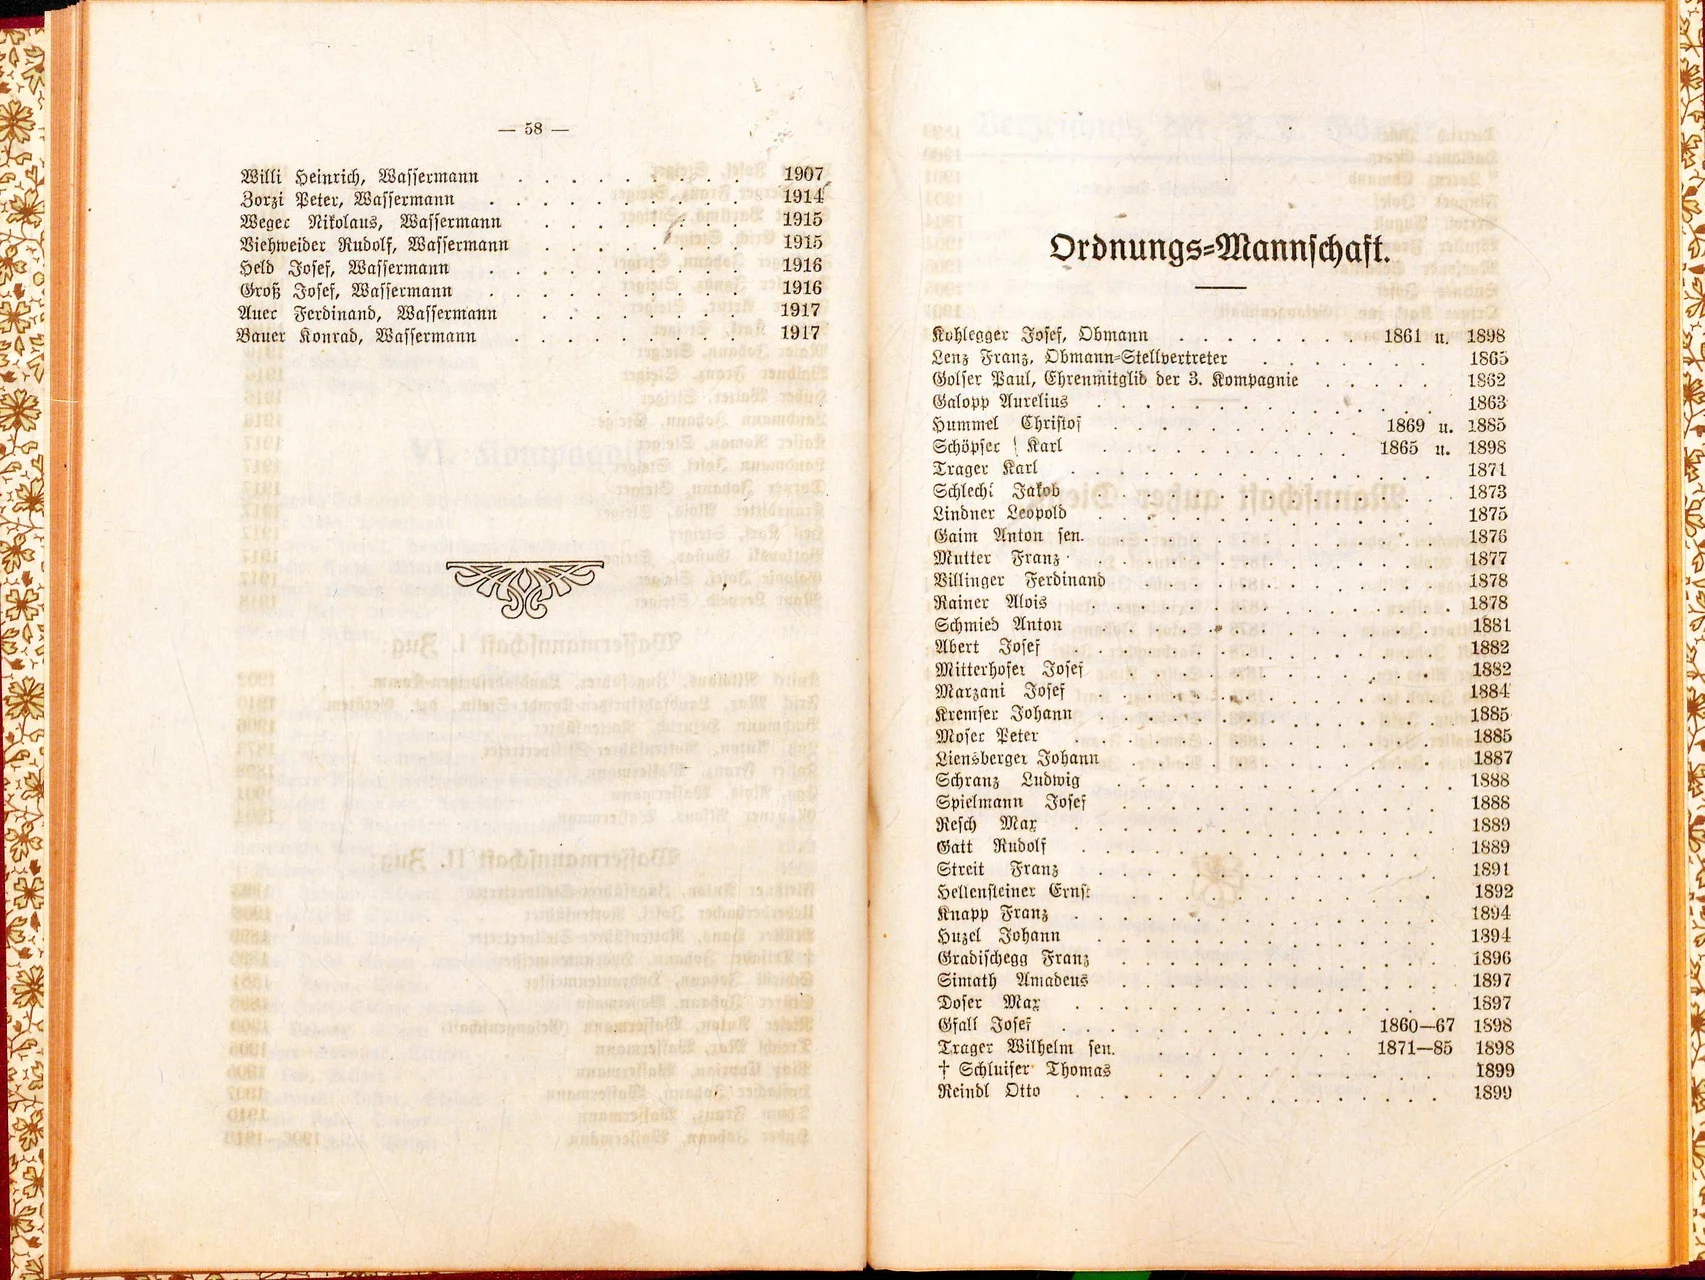 — 58 —
Willi Heinrich, Wassermann . . . . . . . . 1907
Zorzi Peter, Wassermann . . . . . . . . . 1914
Weger Nikolaus, Wassermann . . . . . . . 1915
Viehweider Rudolf, Wassermann . . . . . . . 1915
Held Josef, Wassermann . . . . . . . . . 1916
Groß Josef, Wassermann . . . . . . . . . 1916
Auer Ferdinand, Wassermann . . . . . . . 1917
Bauer Konrad, Wassermann . . . . . . . . 1917
Ordnungs-Mannschaft.
Kohlegger Josef, Obmann . . . . . . . 1861 u. 1898
Lenz Franz, Obmann-Stellvertreter . . . . . . 1865
Golser Paul, Ehrenmitglid der 3. Kompagnie . . . . . 1862
Galopp Aurelius . . . . . . . . . . . . 1863
Hummel Christof . . . . . . . . . 1869 u. 1885
Schöpfer Karl . . . . . . . . . . 1865 u. 1898
Trager Karl . . . . . . . . . . . . . 1871
Schlechl Jakob . . . . . . . . . . . . 1873
Lindner Leopold . . . . . . . . . . . . 1875
Gaim Anton sen. . . . . . . . . . . . 1876
Mutter Franz . . . . . . . . . . . . 1877
Villinger Ferdinand . . . . . . . . . . . 1878
Rainer Alois . . . . . . . . . . . . . 1878
Schmied Anton . . . . . . . . . . . . 1881
Abert Josef . . . . . . . . . . . . . 1882
Mitterhofer Josef . . . . . . . . . . . 1882
Marzani Josef . . . . . . . . . . . . 1884
Kremser Johann . . . . . . . . . . . . 1885
Moser Peter . . . . . . . . . . . . . 1885
Liensberger Johann . . . . . . . . . . . 1887
Schranz Ludwig . . . . . . . . . . . . 1888
Spielmann Josef . . . . . . . . . . . . 1888
Resch Max . . . . . . . . . . . . . 1889
Gatt Rudolf . . . . . . . . . . . . . 1889
Streit Franz . . . . . . . . . . . . . 1891
Hellensteiner Ernst . . . . . . . . . . . 1892
Knapp Franz . . . . . . . . . . . . . 1894
Huzel Johann . . . . . . . . . . . . 1894
Gradischegg Franz . . . . . . . . . . . 1896
Simath Amadeus . . . . . . . . . . . . 1897
Doser Max . . . . . . . . . . . . . 1897
Gfall Josef . . . . . . . . . . . 1860—67 1898
Trager Wilhelm sen. . . . . . . . . 1871—85 1898
† Schluifer Thomas . . . . . . . . . . . 1899
Reindl Otto . . . . . . . . . . . . . 1899